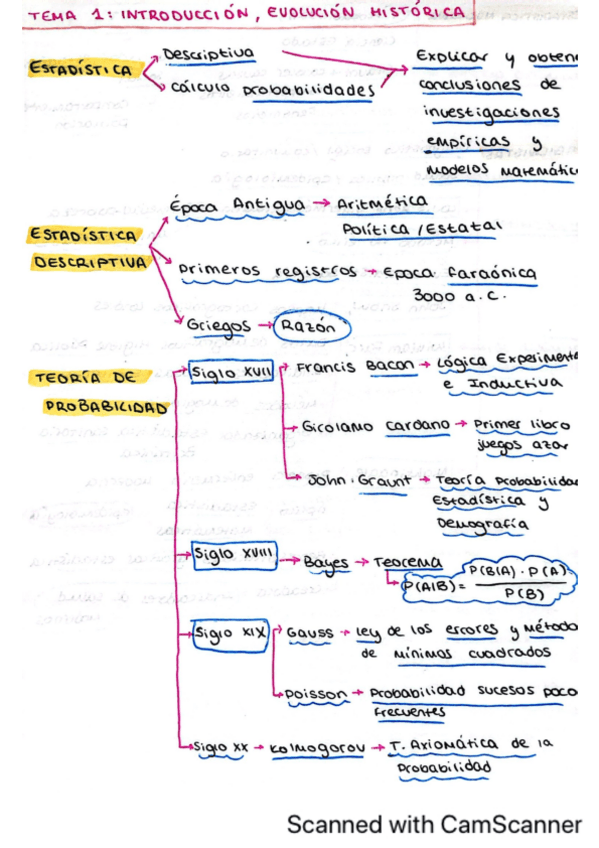 TEMA 1: INTRODUCCIÓN, EVOLUCIÓN HISTÓRICA
ESTADÍSTICA
Descriptiva
Cálculo probabilidades
Explicar y obten
conclusiones de
investigaciones
empíricas y
modelos matemátic
ESTADÍSTICA
DESCRIPTIVA
Época Antigua → Aritmética
Política / Estatal
Primeros registros → Epoca faraónica
3000 a.C.
Griegos → Razón
TEORÍA DE
PROBABILIDAD
Siglo XVII
Francis Bacon → Lógica Experimenta
e Inductiva
Girolamo Cardano → Primer libro
juegos azar
John Graunt → Teoría Probabilidad
Estadística y
Demografía
Siglo XVIII → Bayes → Teorema
P(A|B) = P(B|A) · P(A) / P(B)
Siglo XIX
Gauss → ley de los errores y Método
de mínimos cuadrados
Poisson → Probabilidad sucesos poco
frecuentes
Siglo XX → Kolmogorov → T. Axiomática de la
Probabilidad
Scanned with CamScanner